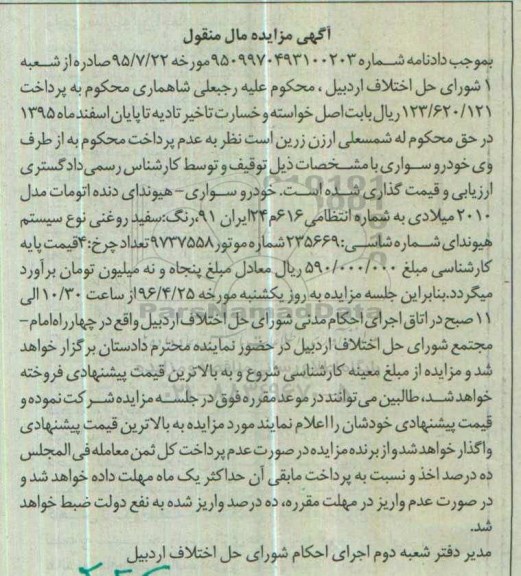 آگهی مزایده مال منقول
بموجب دادنامه شماره ۹۵۰۹۹۷۰۴۹۳۱۰۰۲۰۳ مورخه ۹۵/۷/۲۲ صادره از شعبه
۱ شورای حل اختلاف اردبیل ، محکوم علیه رجبعلی شاهماری محکوم به پرداخت
۱۲۳/۶۲۰/۱۲۱ ریال بابت اصل خواسته و خسارت تاخیر تادیه تا پایان اسفند ماه ۱۳۹۵
در حق محکوم له شمسعلی ارزن زرین است نظر به عدم پرداخت محکوم به از طرف
وی خودرو سواری با مشخصات ذیل توقیف و توسط کارشناس رسمی دادگستری
ارزیابی و قیمت گذاری شده است. خودرو سواری – هیوندای دنده اتومات مدل
۲۰۱۰ میلادی به شماره انتظامی ۶۱۶م۲۴ ایران ۹۱، رنگ: سفید روغنی نوع سیستم
هیوندای شماره شاسی: ۲۳۵۶۶۹ شماره موتور ۹۷۳۷۵۵۸ تعداد چرخ: ۴ قیمت پایه
کارشناسی مبلغ ۵۹۰/۰۰۰/۰۰۰ ریال معادل مبلغ پنجاه و نه میلیون تومان برآورد
میگردد. بنابراین جلسه مزایده به روز یکشنبه مورخه ۹۶/۴/۲۵ از ساعت ۱۰/۳۰ الی
۱۱ صبح در اتاق اجرای احکام مدنی شورای حل اختلاف اردبیل واقع در چهارراه امام –
مجتمع شورای حل اختلاف اردبیل در حضور نماینده محترم دادستان برگزار خواهد
شد و مزایده از مبلغ معینه کارشناسی شروع و به بالاترین قیمت پیشنهادی فروخته
خواهد شد، طالبین می توانند در موعد مقرره فوق در جلسه مزایده شرکت نموده و
قیمت پیشنهادی خودشان را اعلام نمایند مورد مزایده به بالاترین قیمت پیشنهادی
واگذار خواهد شد و از برنده مزایده در صورت عدم پرداخت کل ثمن معامله فی المجلس
ده درصد اخذ و نسبت به پرداخت مابقی آن حداکثر یک ماه مهلت داده خواهد شد و
در صورت عدم واریز در مهلت مقرره، ده درصد واریز شده به نفع دولت ضبط خواهد
شد.
مدیر دفتر شعبه دوم اجرای احکام شورای حل اختلاف اردبیل